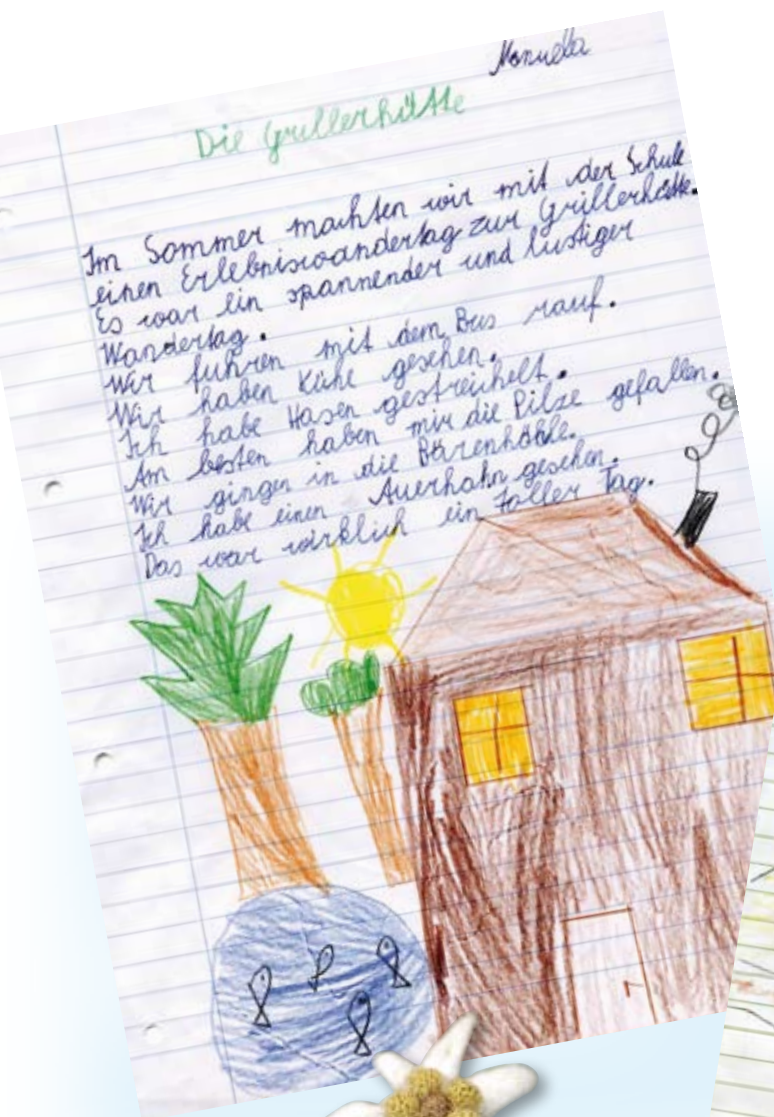 Manuela
Die Grillerhütte
Im Sommer machten wir mit der Schule
einen Erlebniswandertag zur Grillerhütte.
Es war ein spannender und lustiger
Wandertag.
Wir fuhren mit dem Bus rauf.
Wir haben Kühe gesehen.
Ich habe Hasen gestreichelt.
Am besten haben mir die Pilze gefallen.
Wir gingen in die Bärenhöhle.
Ich habe einen Auerhahn gesehen.
Das war wirklich ein toller Tag.